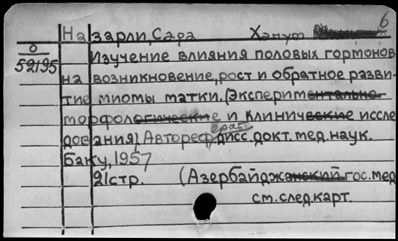 6
Назарли, Сара Ханум
0
52195
Изучение влияния половых гормонов
на возникновение, рост и обратное разви-
тие миомы матки. (Эксперименталь­но-
морфологические и клинические иссле-
дования). Автореф. дисс. докт. мед. наук.
Баку, 1957
21 стр. (Азербайджанский гос. мед
см. след. карт.